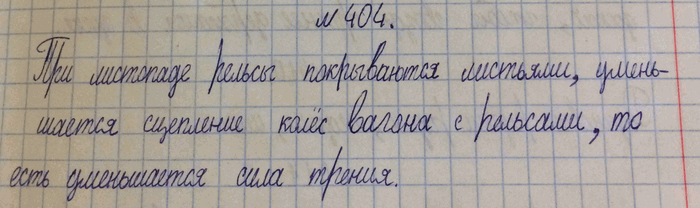 № 404.
При листопаде рельсы покрываются листьями, умень-
шается сцепление колёс вагона с рельсами, то
есть уменьшается сила трения.